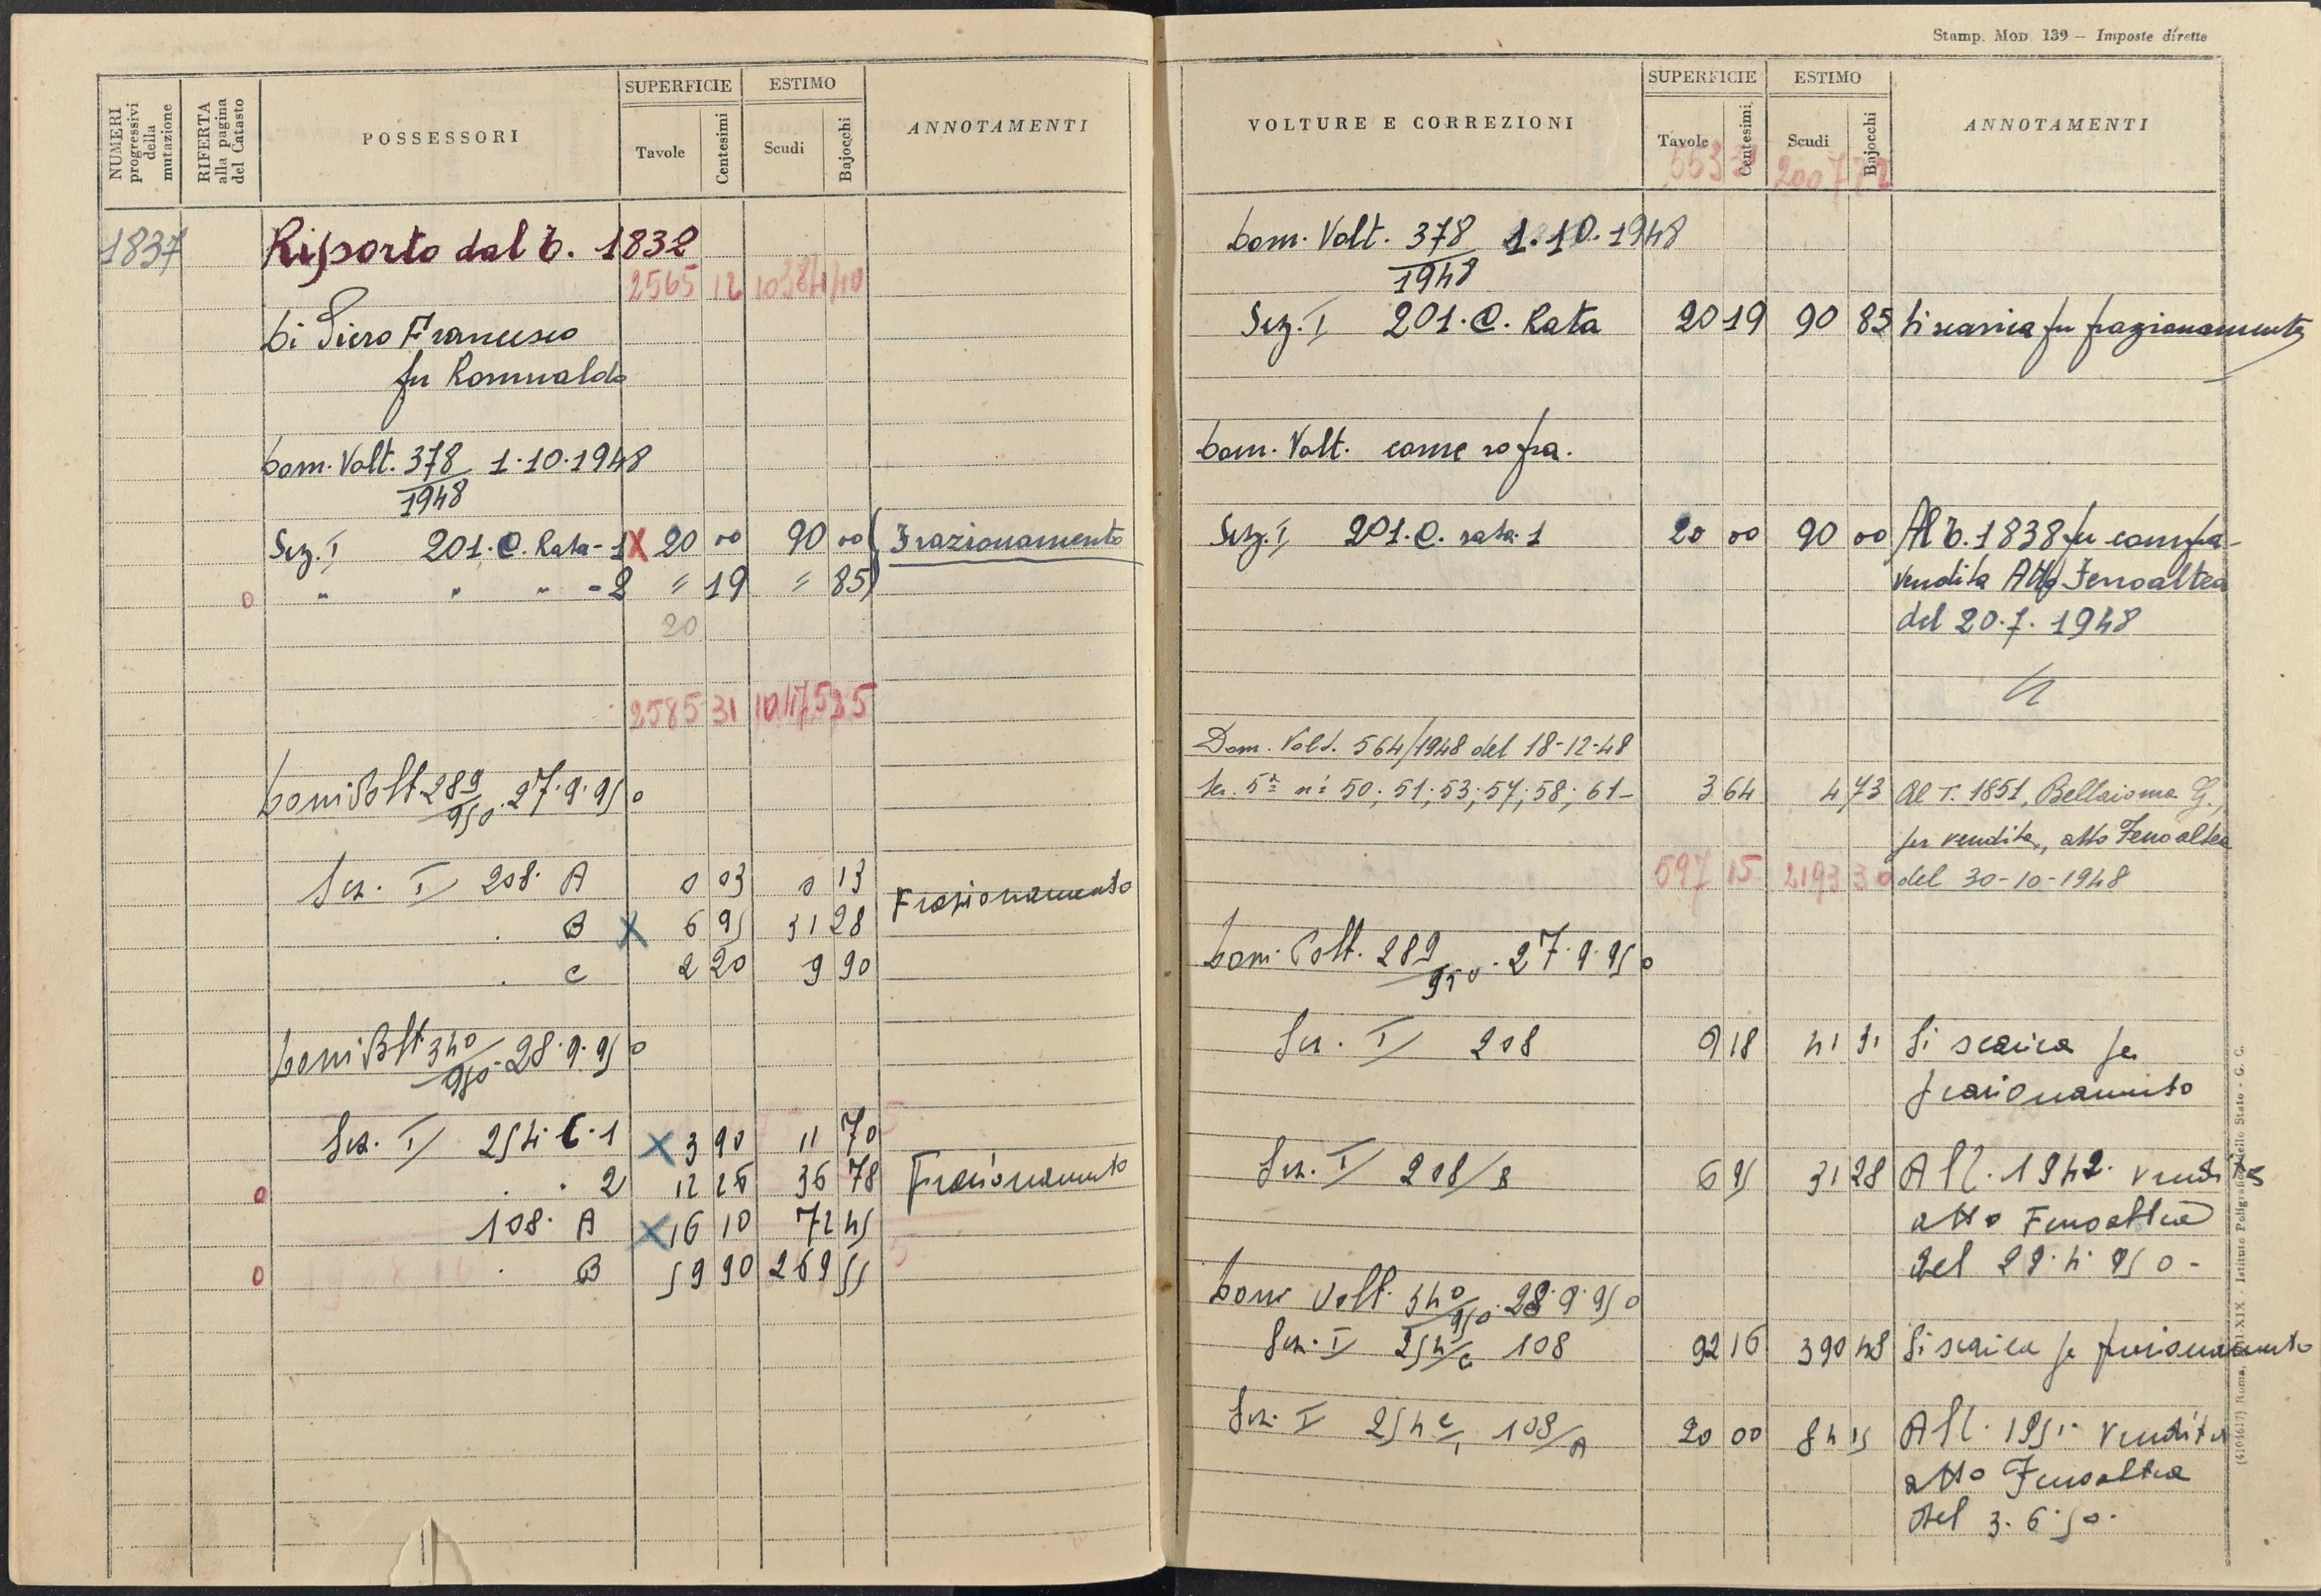 NUMERI progressivi della mutazione
RIFERTA alla pagina del Catasto
POSSESSORI
SUPERFICIE
Tavole
Centesimi
ESTIMO
Scudi
Bajocchi
ANNOTAMENTI
1837
Riporto dal T. 1832
2565 12 10384 40
Di Piero Francesco
fu Romualdo
Dom. Volt. 378/1948 1.10.1948
Sez. I 201.C. Rata-1 X 20 00 90 00 Frazionamento
o " " " -2 = 19 = 85
20
2585 31
Dom. Volt. 289/950. 27.9.950
Sez. I 208. A 0 03 0 13
. B X 6 95 31 28 Frazionamento
. C 2 20 9 90
Dom. Volt 340/950. 28.9.950
Sez. I 254. C. 1 X 3 90 11 70
o . . 2 12 26 36 78 Frazionamento
108. A X 16 10 72 45
o . B 59 90 269 55
Stamp. Mod 139 – Imposte dirette
VOLTURE E CORREZIONI
SUPERFICIE
Tavole
Centesimi
ESTIMO
Scudi
Bajocchi
ANNOTAMENTI
Dom. Volt. 378/1948 1.10.1948
Sez. I 201.C. Rata 20 19 90 85 Si scarica per frazionamento
Dom. Volt. come sopra.
Sez. I 201.C. rata.1 20 00 90 00 Al T. 1838 per compra-
vendita Atto Fenoaltea
del 20.7.1948
Dom. Volt. 564/1948 del 18-12-48
Sez. 5ª nⁱ 50; 51; 53; 57; 58; 61- 3 64 4 73 Al T. 1851, Bellaioma G.,
per vendita, atto Fenoaltea
597 15 2193 30 del 30-10-1948
Dom. Volt. 289/950. 27.9.950
Sez. I 208 9 18 41 31 Si scarica per
frazionamento
Sez. I 208/B 6 95 31 28 Al T. 1942. vendita
atto Fenoaltea
del 29.4.950-
Dom Volt. 340/950. 28.9.950
Sez. I 254/C 108 92 16 390 48 Si scarica per frazionamento
Sez. I 254 C/1 108/A 20 00 84 15 Al T. vendita
atto Fenoaltea
del 3.6.50.
Istituto Poligrafico dello Stato - G. C.